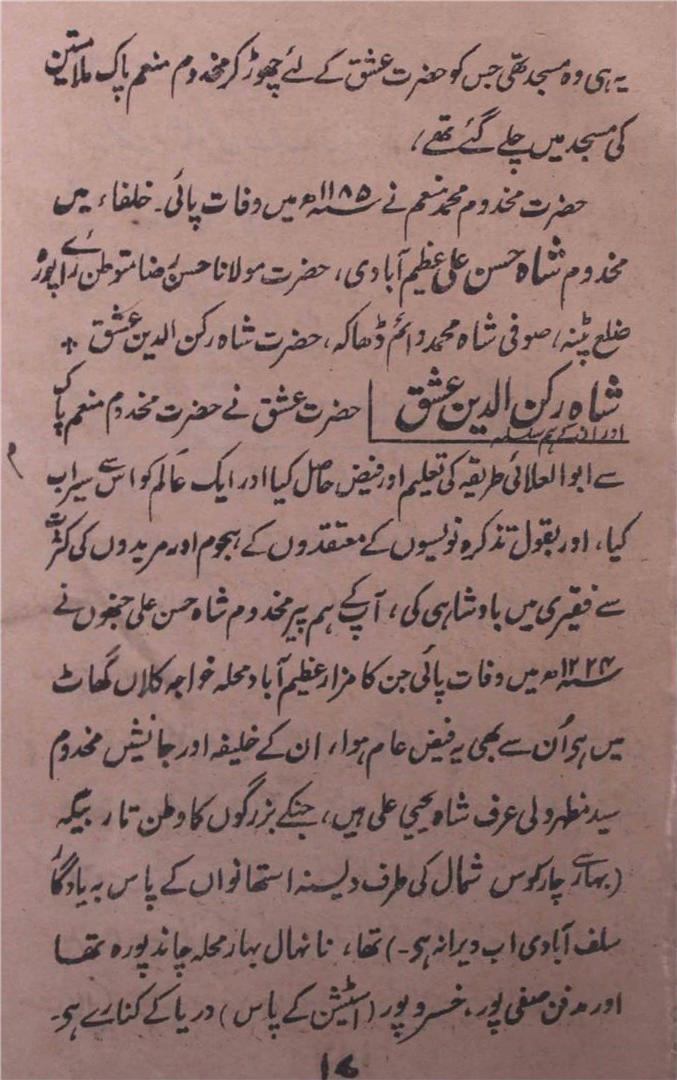 یہ ہی وہ مسجد تھی جس کو حضرت عشق کے لئے چھوڑ کر مخدوم منعم پاک ملا متین
کی مسجد میں چلے گئے تھے،
حضرت مخدوم محمد منعم نے ۱۱۸۵ھ میں وفات پائی۔ خلفاء میں
مخدوم شاہ حسن علی عظیم آبادی، حضرت مولانا حسن رضا متوطن رائے پورہ
ضلع پٹنہ، صوفی شاہ محمد دائم ڈھاکہ، حضرت شاہ رکن الدین عشق
شاہ رکن الدین عشق
اور ان کے ہم سلسلہ
حضرت عشق نے حضرت مخدوم منعم پاک
سے ابوالعلائی طریقہ کی تعلیم اور فیض حاصل کیا اور ایک عالم کو اس سے سیراب
کیا، اور بقول تذکرہ نویسوں کے معتقدوں کے ہجوم اور مریدوں کی کثرت
سے فقیری میں بادشاہی کی، آپ کے ہم پیر مخدوم شاہ حسن علی جنھوں نے
۱۲۲۴ھ میں وفات پائی جن کا مزار عظیم آباد محلہ خواجہ کلاں گھاٹ
میں ہو اُن سے بھی یہ فیض عام ہوا، ان کے خلیفہ اور جانشیں مخدوم
سید مظہر ولی عرف شاہ یحییٰ علی ہیں، جنکے بزرگوں کا وطن تار بیگہ
(بہار سے چار کوس شمال کی طرف دیسنہ استھانواں کے پاس یہ یادگار
سلف آبادی اب ویرانہ ہو۔) تھا، نانہال بہار محلہ چاند پورہ تھا
اور مدفن صفی پور، خسرو پور (اسٹیشن کے پاس) دریا کے کنارے ہو۔